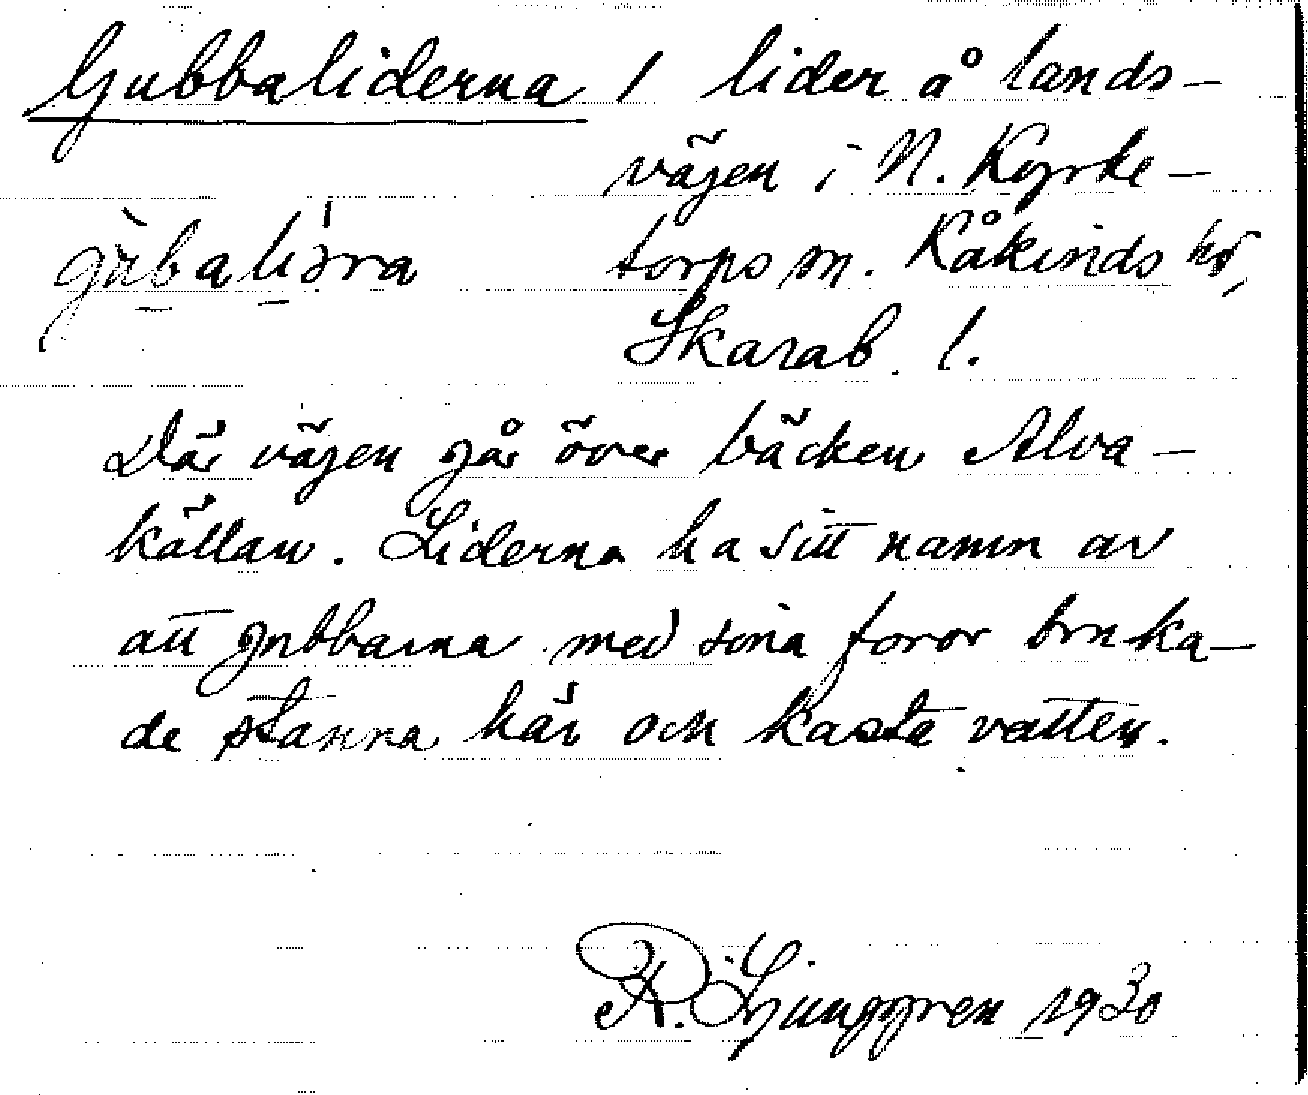 Gubbaliderna / lider å lands-
vägen i N. Kyrke-
torps sn. Kåkinds hd,
Skarab. l.
Där vägen går över bäcken Alva-
källan. Liderna ha sitt namn av
att gubbarna med sina foror bruka-
de stanna här och kasta vatten.
R. Ljunggren 1930